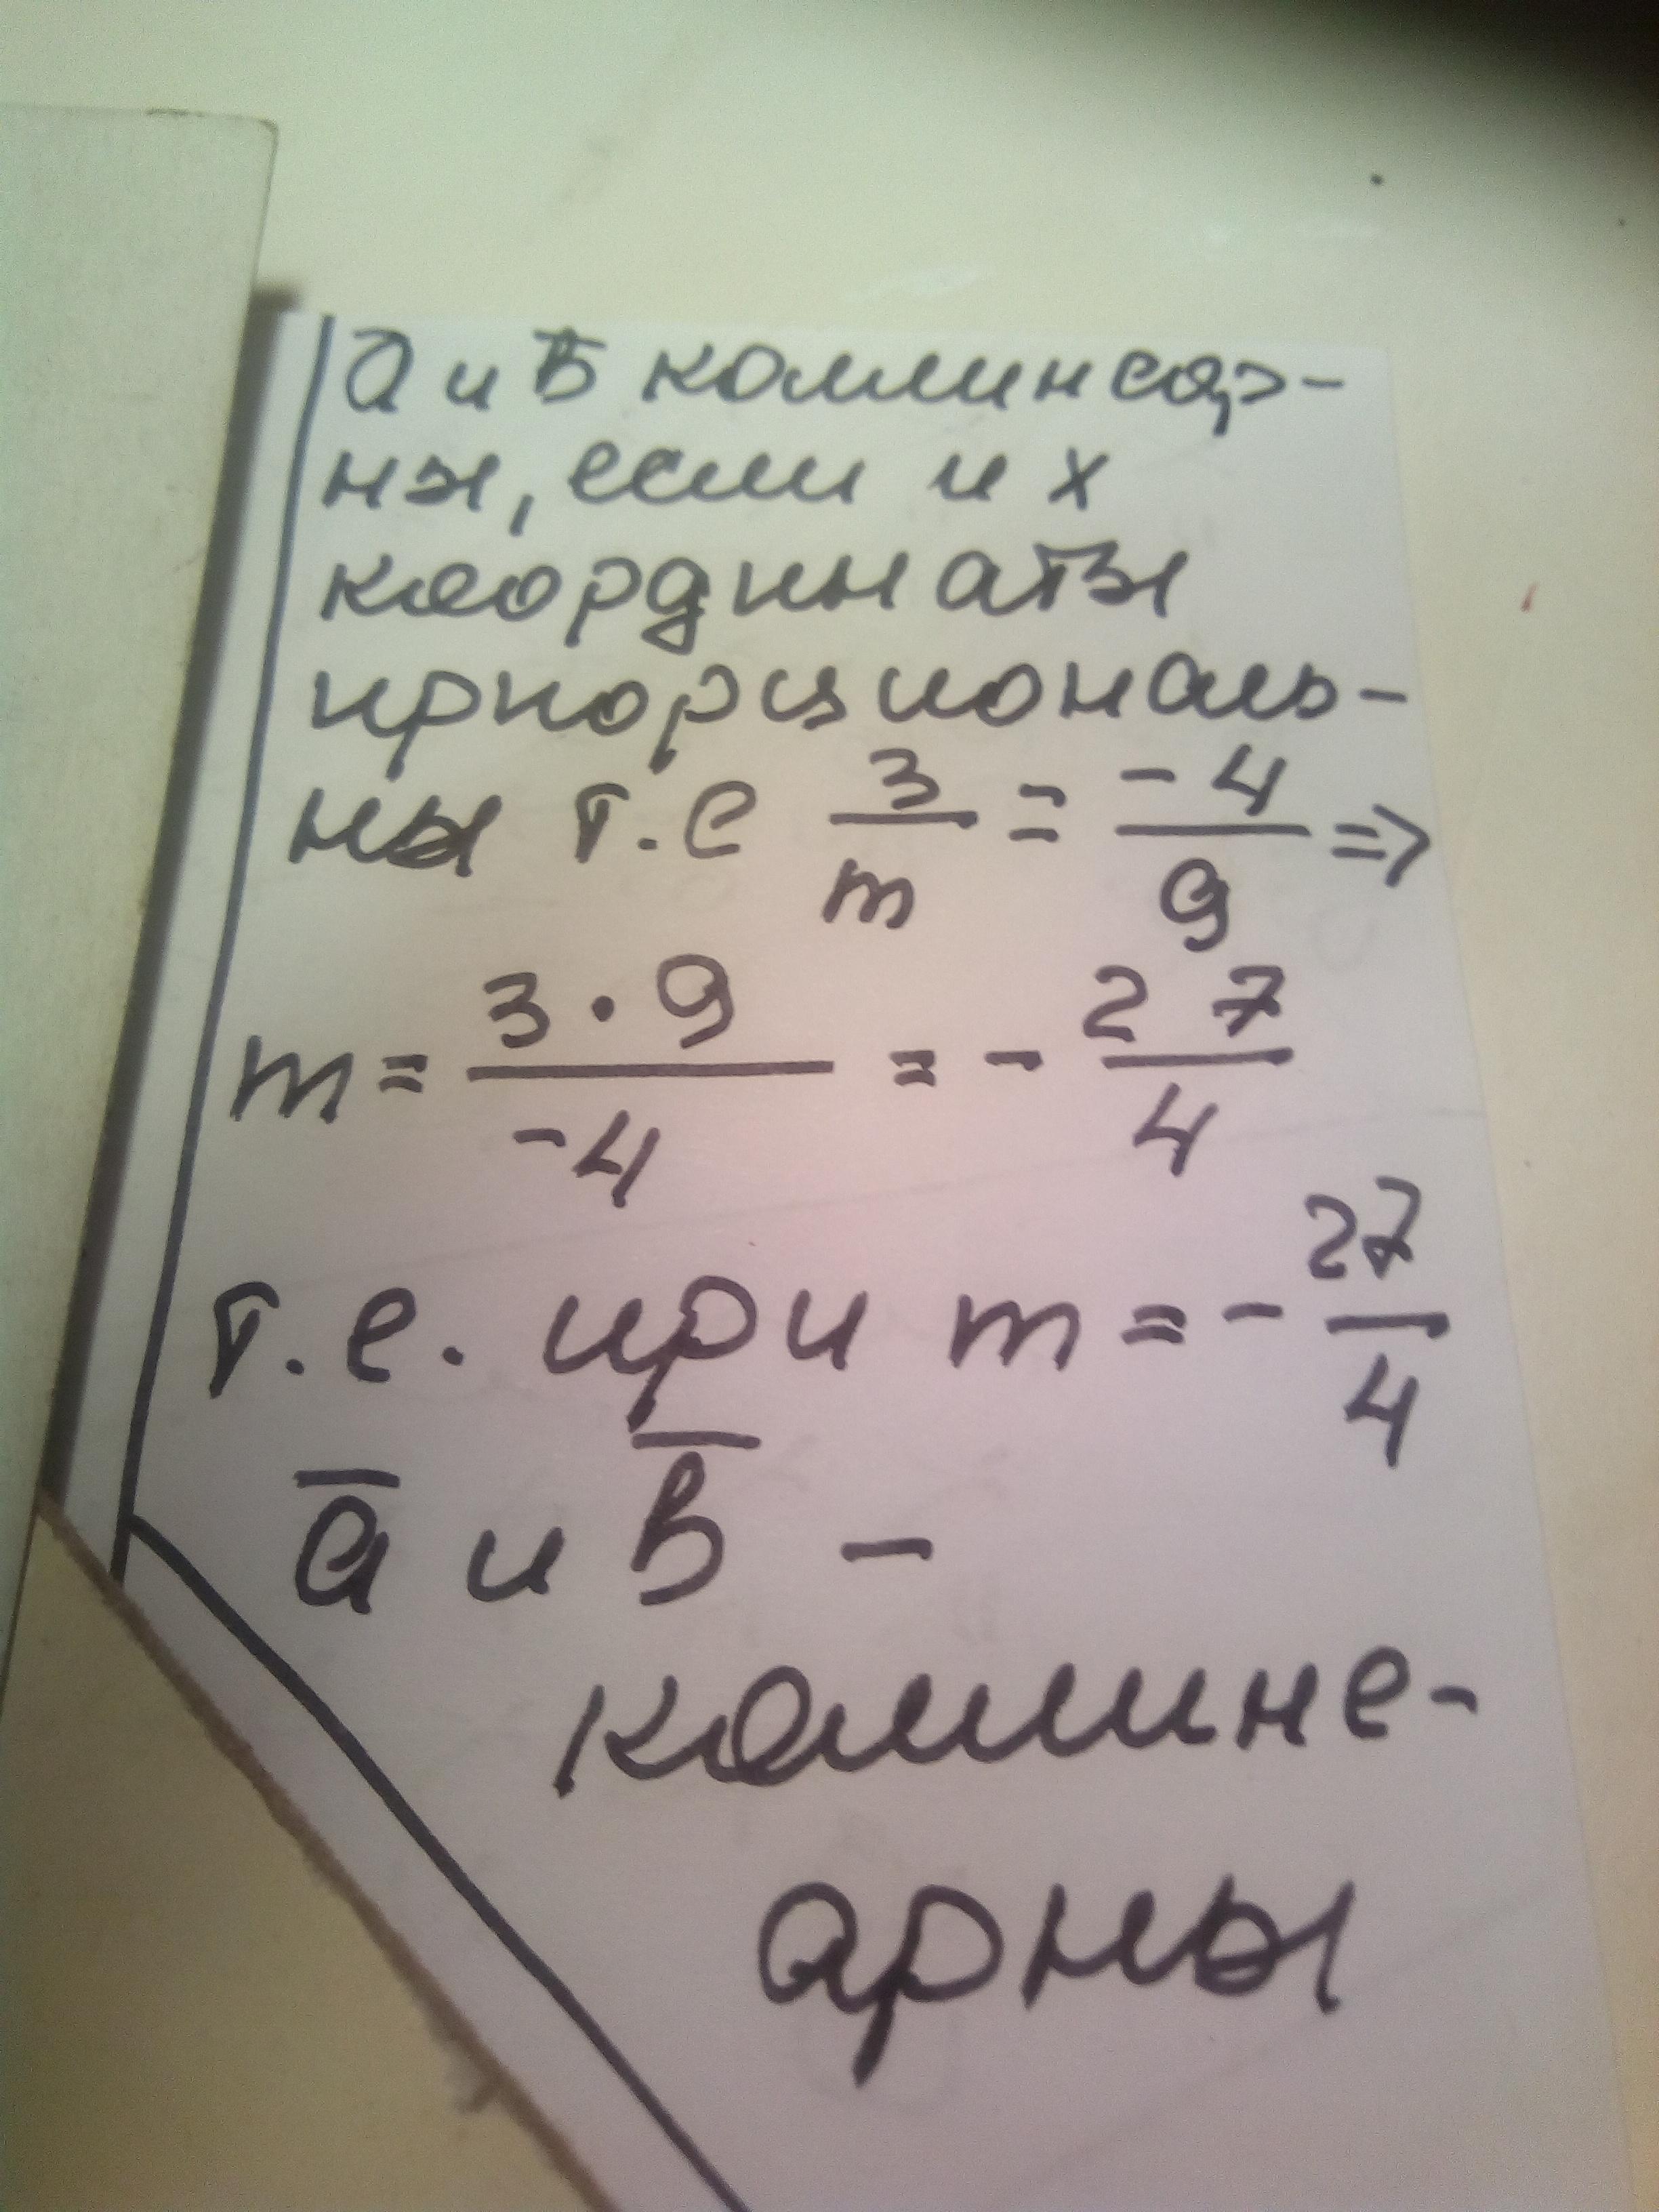 a̅ и b̅ коллинеар-
ны, если их
координаты
прпорциональ-
ны т.е 3/m = -4/9 =>
m = 3·9/-4 = - 27/4
т.е. при m = - 27/4
a̅ и b̅ -
коллине-
арны